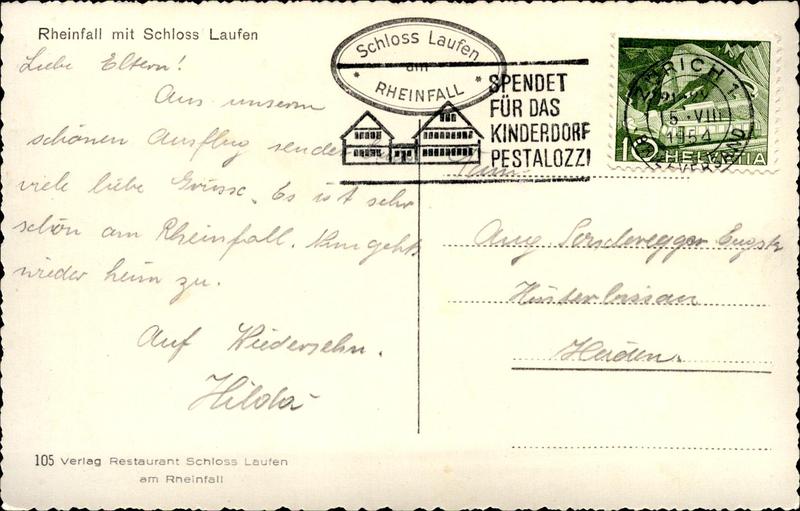 Rheinfall mit Schloss Laufen
Liebe Eltern!
Aus unserm
schönen Ausflug senden
viele liebe Grüsse. Es ist sehr
schön am Rheinfall. Nun geht's
wieder heim zu.
Auf Wiedersehn.
Hilda
105 Verlag Restaurant Schloss Laufen
am Rheinfall
Schloss Laufen
am
RHEINFALL
SPENDET
FÜR DAS
KINDERDORF
PESTALOZZI
ZÜRICH 1
VIII
1954
10 HELVETIA
Fam.
Aug
Heiden.